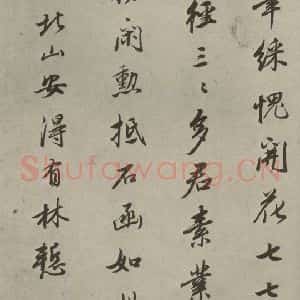 綵愧開花七七
徑三〻多君素業
閑勳抵石函如
北山安得有林慙
Shufawang.CN